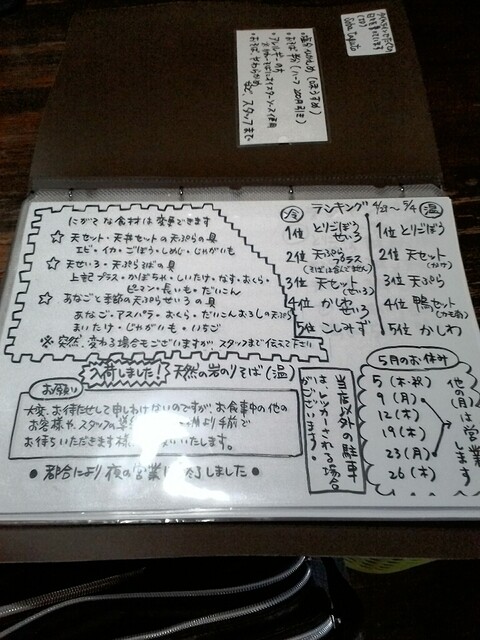 ・塩分ひかえめ（ほうすめ）
・おそば半分（ハーフ 200円引き）
・アレルギーの方
・おそば やわらかめ
など、スタッフまで
にがてな食材は変更できます
☆ 天セット・天丼セットの天ぷらの具
エビ・イカ・ごぼう・しめじ・じゃがいも
☆ 天せいろ・天ぷらそばの具
上記プラス・かぼちゃ・しいたけ・なす・おくら・
ピーマン・長いも・だいこん
☆ あなごと季節の天ぷらせいろの具
あなご・アスパラ・おくら・だいこんおろしの天ぷら
まいたけ・じゃがいも・いちご
※ 突然、変わる場合もございますが、スタッフまで伝えて下さい
ランキング 4/27～5/4
冷
1位 とりごぼうせいろ
2位 天ぷらプラス
(そばは含みません)
3位 天セット(せいろ)
4位 かしわせいろ
5位 こしみず
温
1位 とりごぼう
2位 天セット
(かけ)
3位 天ぷら
4位 鴨セット
5位 かしわ
入荷しました！ 天然の岩のりそば（温）
お願い
大変、お待たせして申しわけないのですが、お食事中の他の
お客様や、スタッフの
より手前で
お待ちいただきます様
いいたします。
● 都合により夜の営業は終了しました ●
当店以外の駐車
は、レッカーされる場合
がございます。
5月のお休み
5（木・祝）
9（月）
12（木）
19（木）
23（月）
26（木）
他の(月)は営業します